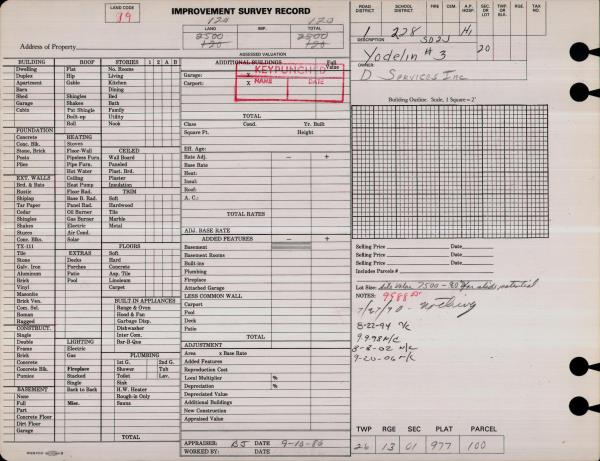 LAND CODE
19
IMPROVEMENT SURVEY RECORD
120 120
LAND IMP. TOTAL
2500 2500
120 120
Address of Property
ASSESSED VALUATION
ROAD DISTRICT SCHOOL DISTRICT FIRE CEM. A.P. HOSP SEC. OR LOT TWP. OR BLK. RGE. TAX NO.
1 228 H1
DESCRIPTION
Yodelin #3 20
OWNER:
D Services Inc
BUILDING ROOF STORIES 1 2 A B
Dwelling Flat No. Rooms
Duplex Hip Living
Apartment Gable Kitchen
Barn Dining
Shed Shingles Bed
Garage Shakes Bath
Cabin Pat Shingle Family
Built-up Utility
Roll Nook
FOUNDATION
Concrete HEATING
Conc. Blk. Stoves
Stone, Brick Floor-Wall CEILED
Posts Pipeless Furn. Wall Board
Piles Pipe Furn. Paneled
Hot Water Plast. Brd.
EXT. WALLS Ceiling Plaster
Brd. & Bats Heat Pump Insulation
Rustic Floor Rad. TRIM
Shiplap Base B. Rad. Soft
Tar Paper Panel Rad. Hardwood
Cedar Oil Burner Tile
Shingles Gas Burner Marble
Shakes Electric Metal
Stucco Air Cond.
Conc. Blks. Solar FLOORS
TX-111 Soft
Tile EXTRAS Hards
Stone Decks Concrete
Galv. Iron Porches Asp. Tile
Aluminum Patio Linoleum
Brick Pool Carpet
Vinyl
Masonite
Brick Ven. BUILT-IN APPLIANCES
Com. Sel. Range & Oven
Roman Hood & Fan
Rugged Garbage Disp.
CONSTRUCT. Dishwasher
Single Inter Com.
Double LIGHTING Bar-B-Que
Frame Electric
Brick Gas PLUMBING
Concrete 1st G. 2nd G.
Concrete Blk. Fireplace Shower Tub
Pumice Stacked Toilet Lav.
Single Sink
BASEMENT Back to Back H.W. Heater
None Rough-in Only
Full Misc. Sauna
Part
Concrete Floor
Dirt Floor
Garage
TOTAL
ADDITIONAL BUILDINGS Full Value
Garage: X
Carport: X
KEYPUNCHED
NAME DATE
TOTAL
Class Cond. Yr. Built
Square Ft. Height
Eff. Age:
Rate Adj. − +
Base Rate
Heat:
Insul:
Roof:
A. C.:
TOTAL RATES
ADJ. BASE RATE
ADDED FEATURES − +
Basement
Basement Rooms
Built-ins
Plumbing
Fireplace
Attached Garage
LESS COMMON WALL
Carport
Pool
Deck
Patio
TOTAL
ADJUSTMENT
Area x Base Rate
Added Features
Reproduction Cost
Local Multiplier %
Depreciation %
Depreciated Value
Additional Buildings
New Construction
Appraised Value
APPRAISER: BJ DATE 9-10-86
WORKED BY: DATE
Building Outline: Scale, 1 Square = 2'
Selling Price Date
Selling Price Date
Selling Price Date
Includes Parcels #
Lot Size: site value 7500 - 80% for slide potential
NOTES: 9588
7/27/90 - nothing
8-22-94 N/C
9-9-98 N/C
8-8-02 N/C
9-20-06 N/C
TWP RGE SEC PLAT PARCEL
26 13 01 977 100